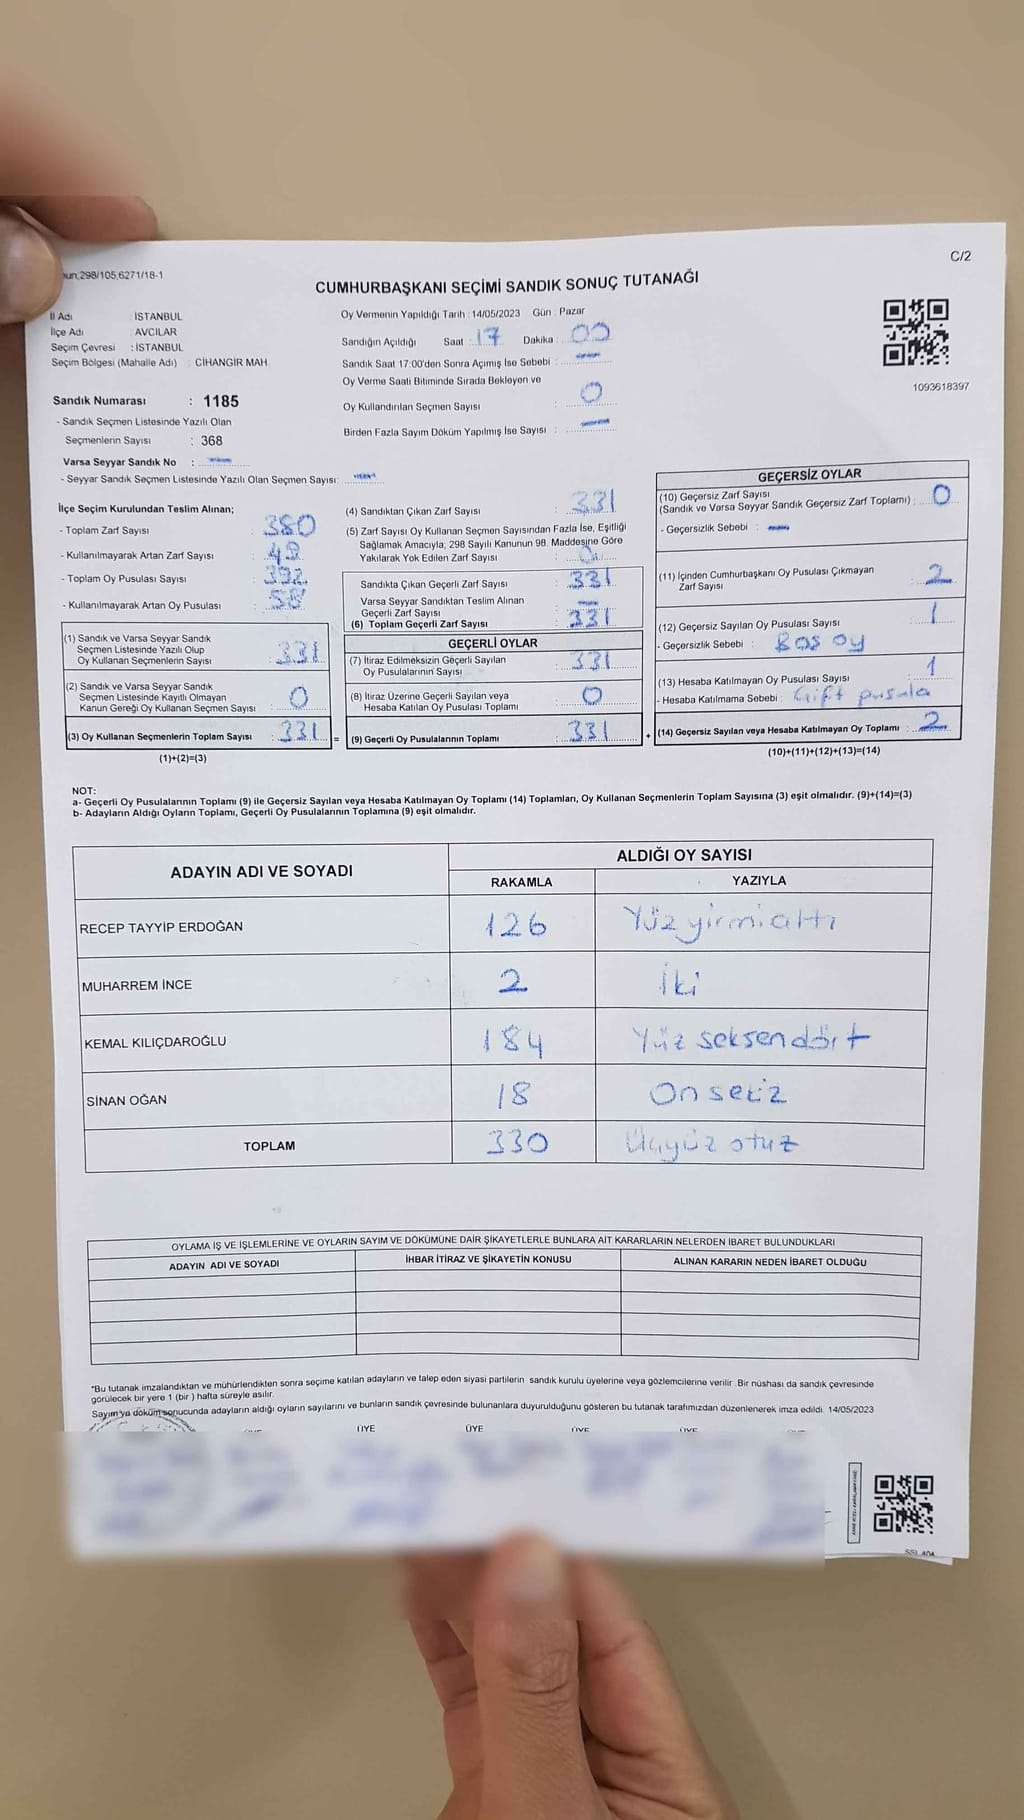 un.298/105.6271/18-1
C/2
CUMHURBAŞKANI SEÇİMİ SANDIK SONUÇ TUTANAĞI
İl Adı : İSTANBUL
İlçe Adı : AVCILAR
Seçim Çevresi : İSTANBUL
Seçim Bölgesi (Mahalle Adı) : CİHANGİR MAH.
Sandık Numarası : 1185
- Sandık Seçmen Listesinde Yazılı Olan
Seçmenlerin Sayısı : 368
Varsa Seyyar Sandık No :
- Seyyar Sandık Seçmen Listesinde Yazılı Olan Seçmen Sayısı:
Oy Vermenin Yapıldığı Tarih : 14/05/2023 Gün : Pazar
Sandığın Açıldığı Saat : 17 Dakika : 00
Sandık Saat 17:00'den Sonra Açımış İse Sebebi :
Oy Verme Saati Bitiminde Sırada Bekleyen ve
Oy Kullandırılan Seçmen Sayısı : 0
Birden Fazla Sayım Döküm Yapılmış İse Sayısı :
1093618397
İlçe Seçim Kurulundan Teslim Alınan;
- Toplam Zarf Sayısı : 380
- Kullanılmayarak Artan Zarf Sayısı : 49
- Toplam Oy Pusulası Sayısı : 392
- Kullanılmayarak Artan Oy Pusulası : 58
(1) Sandık ve Varsa Seyyar Sandık
Seçmen Listesinde Yazılı Olup
Oy Kullanan Seçmenlerin Sayısı : 331
(2) Sandık ve Varsa Seyyar Sandık
Seçmen Listesinde Kayıtlı Olmayan
Kanun Gereği Oy Kullanan Seçmen Sayısı : 0
(3) Oy Kullanan Seçmenlerin Toplam Sayısı : 331 =
(1)+(2)=(3)
(4) Sandıktan Çıkan Zarf Sayısı : 331
(5) Zarf Sayısı Oy Kullanan Seçmen Sayısından Fazla İse, Eşitliği
Sağlamak Amacıyla; 298 Sayılı Kanunun 98. Maddesine Göre
Yakılarak Yok Edilen Zarf Sayısı : 0
Sandıkta Çıkan Geçerli Zarf Sayısı : 331
Varsa Seyyar Sandıktan Teslim Alınan
Geçerli Zarf Sayısı :
(6) Toplam Geçerli Zarf Sayısı : 331
GEÇERLİ OYLAR
(7) İtiraz Edilmeksizin Geçerli Sayılan
Oy Pusulalarının Sayısı : 331
(8) İtiraz Üzerine Geçerli Sayılan veya
Hesaba Katılan Oy Pusulası Toplamı : 0
(9) Geçerli Oy Pusulalarının Toplamı : 331 +
GEÇERSİZ OYLAR
(10) Geçersiz Zarf Sayısı
(Sandık ve Varsa Seyyar Sandık Geçersiz Zarf Toplamı) : 0
- Geçersizlik Sebebi :
(11) İçinden Cumhurbaşkanı Oy Pusulası Çıkmayan
Zarf Sayısı : 2
(12) Geçersiz Sayılan Oy Pusulası Sayısı : 1
- Geçersizlik Sebebi : Boş oy
(13) Hesaba Katılmayan Oy Pusulası Sayısı : 1
- Hesaba Katılmama Sebebi : Çift pusula
(14) Geçersiz Sayılan veya Hesaba Katılmayan Oy Toplamı : 2
(10)+(11)+(12)+(13)=(14)
NOT:
a- Geçerli Oy Pusulalarının Toplamı (9) ile Geçersiz Sayılan veya Hesaba Katılmayan Oy Toplamı (14) Toplamları, Oy Kullanan Seçmenlerin Toplam Sayısına (3) eşit olmalıdır. (9)+(14)=(3)
b- Adayların Aldığı Oyların Toplamı, Geçerli Oy Pusulalarının Toplamına (9) eşit olmalıdır.
ADAYIN ADI VE SOYADI ALDIĞI OY SAYISI
RAKAMLA YAZIYLA
RECEP TAYYİP ERDOĞAN 126 Yüz yirmi altı
MUHARREM İNCE 2 İki
KEMAL KILIÇDAROĞLU 184 Yüz seksen dört
SİNAN OĞAN 18 On sekiz
TOPLAM 330 Üçyüz otuz
OYLAMA İŞ VE İŞLEMLERİNE VE OYLARIN SAYIM VE DÖKÜMÜNE DAİR ŞİKAYETLERLE BUNLARA AİT KARARLARIN NELERDEN İBARET BULUNDUKLARI
ADAYIN ADI VE SOYADI İHBAR İTİRAZ VE ŞİKAYETİN KONUSU ALINAN KARARIN NEDEN İBARET OLDUĞU
*Bu tutanak imzalandıktan ve mühürlendikten sonra seçime katılan adayların ve talep eden siyasi partilerin sandık kurulu üyelerine veya gözlemcilerine verilir. Bir nüshası da sandık çevresinde
görülecek bir yere 1 (bir) hafta süreyle asılır.
Sayım ve döküm sonucunda adayların aldığı oyların sayılarını ve bunların sandık çevresinde bulunanlara duyurulduğunu gösteren bu tutanak tarafımızdan düzenlenerek imza edildi. 14/05/2023
ÜYE ÜYE ÜYE ÜYE